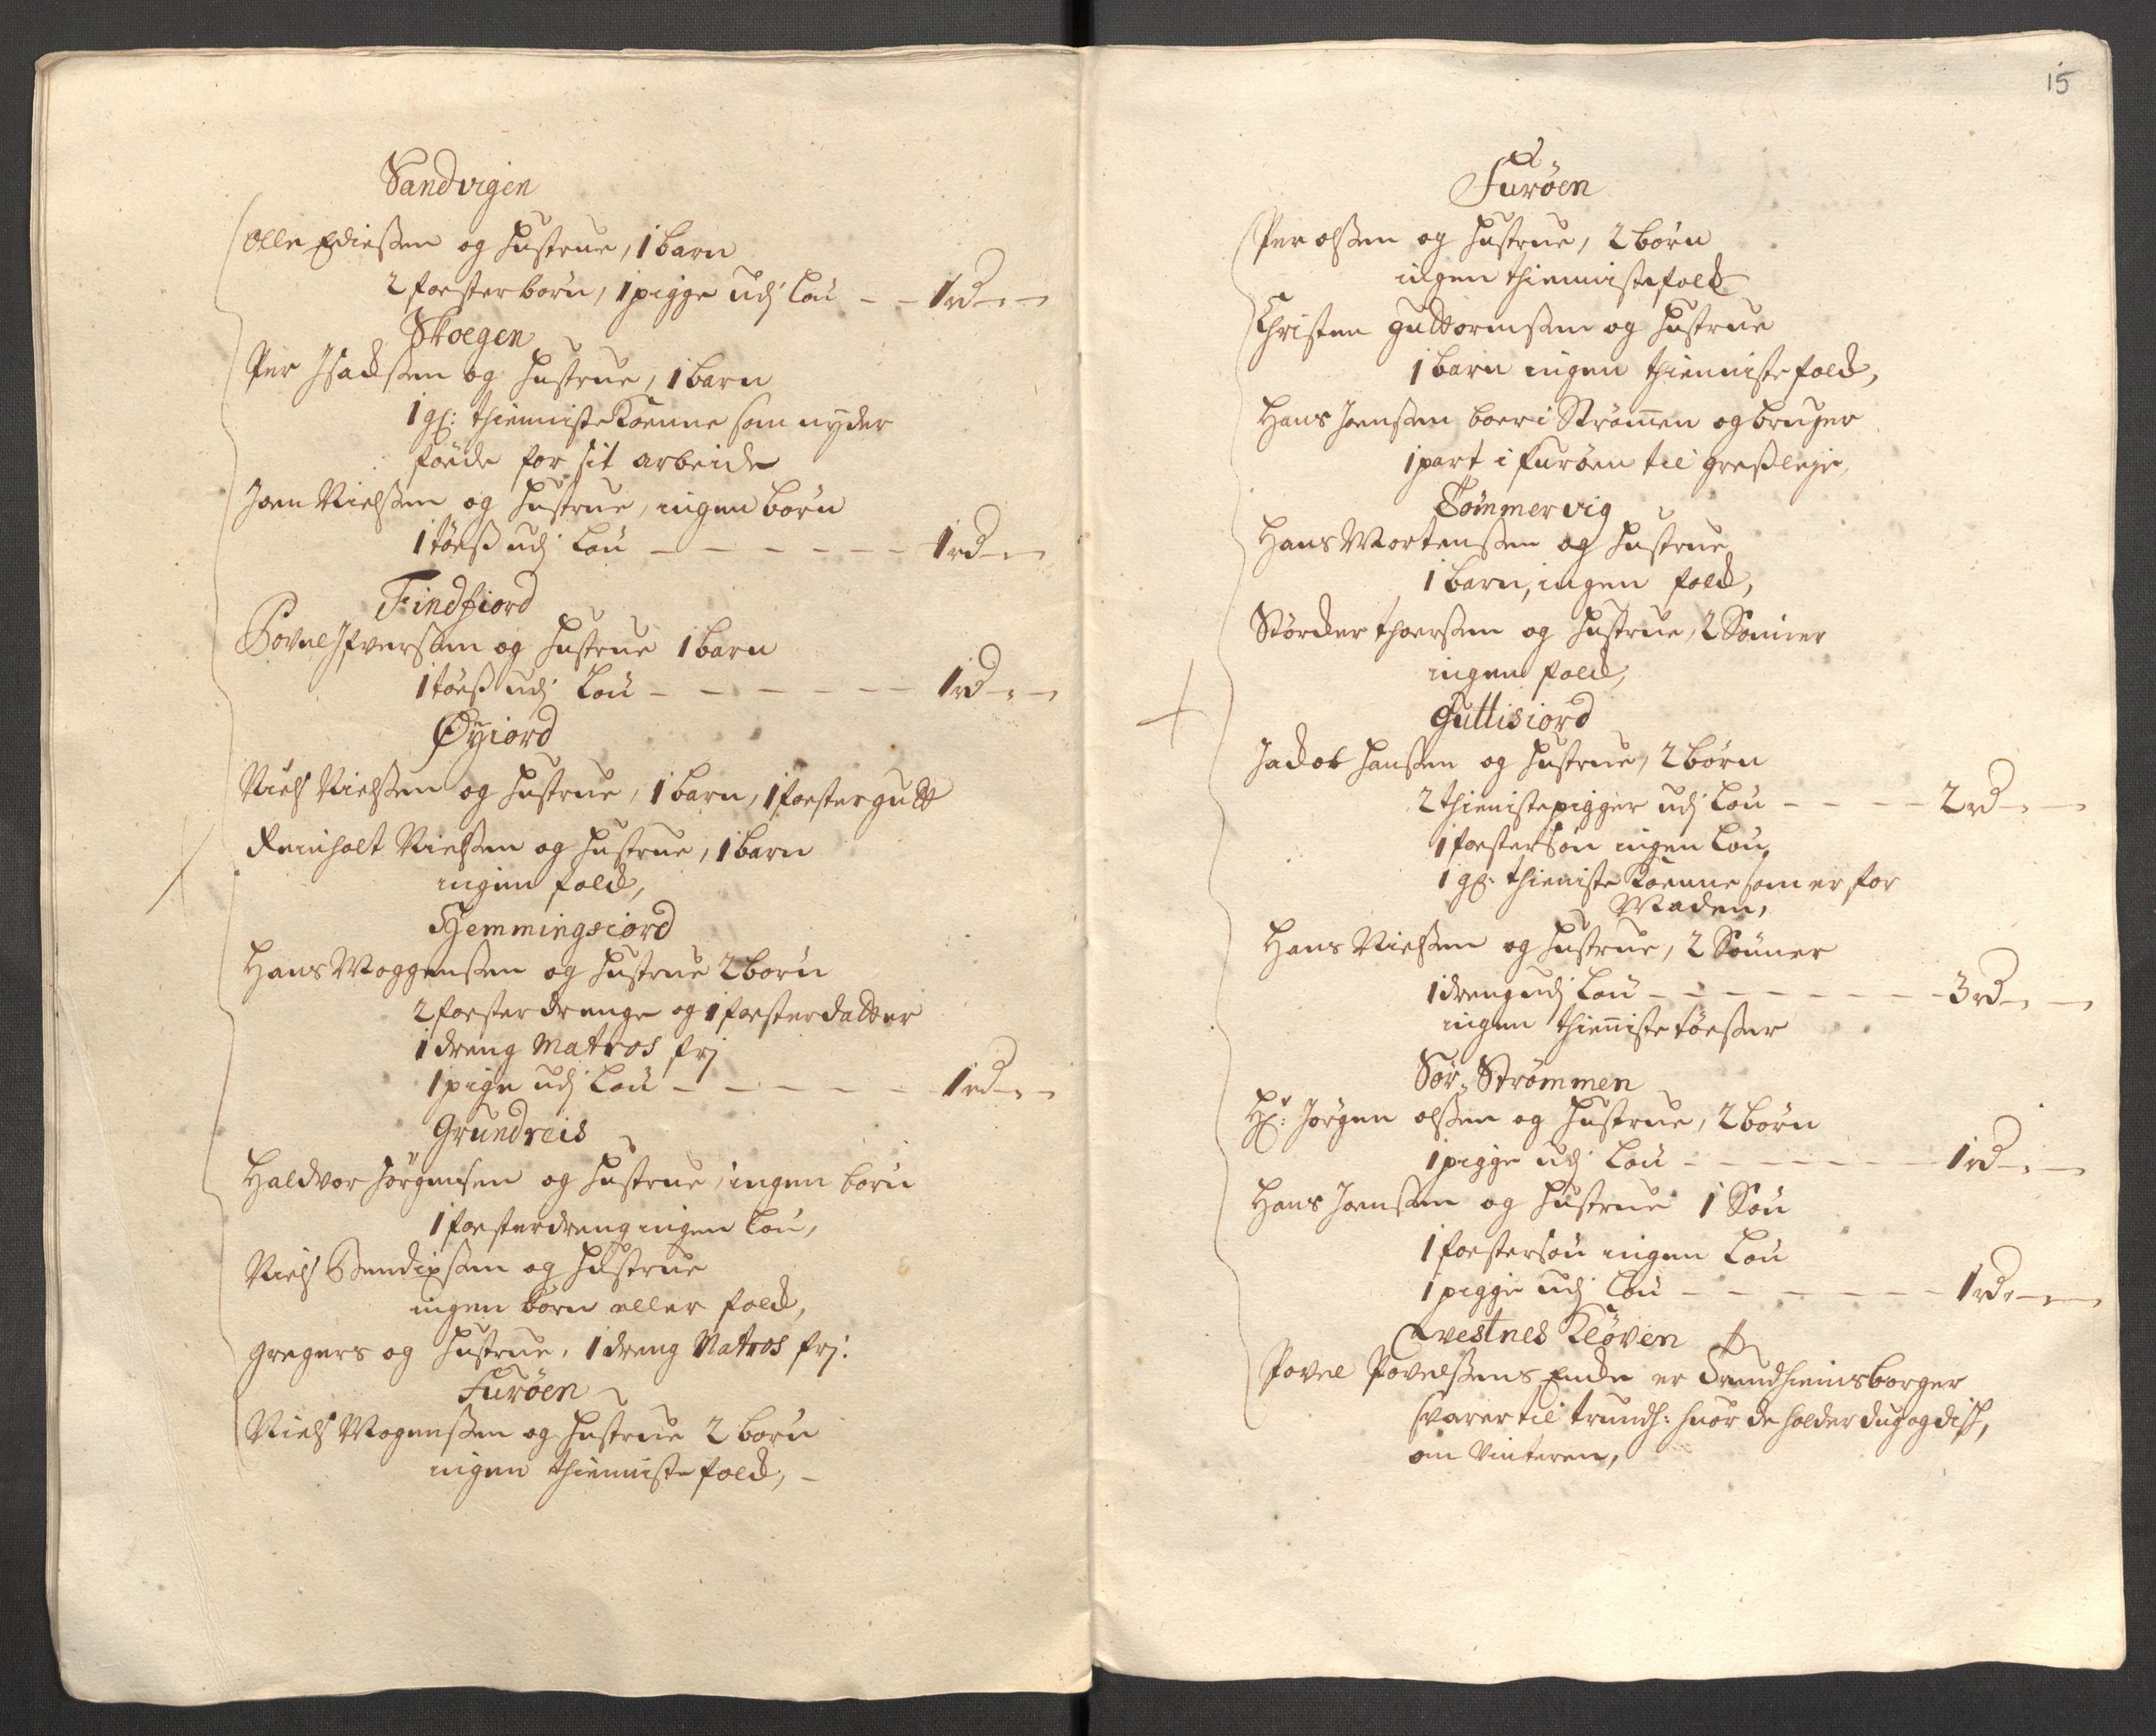 Sandvigen
Olle Ediessen og Hustrue, 1 barn
2 foesterbørn, 1 pigge udj Løn - - 1 rd - -
Skoegen
Per Isacksen og Hustrue, 1 barn
1 gl: thienniste Koenne som nyder
føede for sit arbeide
Joen Nielsen og Hustrue, ingen børn
1 tøeß udj Løn - - - - - - 1 rd - -
Findfiord
Povel Ifversen og Hustrue 1 barn
1 tøeß udj Løn - - - - - - 1 rd - -
Øyiord
Niels Nielsen og Hustrue, 1 barn, 1 foestergutt
Reinholt Nielsen og Hustrue, 1 barn
ingen folck,
Hemmingsiord
Hans Moggensen og Hustrue 2 børn
2 foesterdrenge og 1 foesterdatter
1 dreng Matros frj
1 pige udj Løn - - - - - 1 rd - -
Grundreis
Haldvor Jørgensen og Hustrue, ingen børn
1 foesterdreng ingen Løn,
Niels Bendixsen og Hustrue
ingen børn eller folck,
Gregers og Hustrue, 1 dreng Matros frj:
Furøen
Niels Mogensen og Hustrue 2 børn
ingen thiennistefolck, -
15
Furøen
Per olsen og Hustrue, 2 børn
ingen thiennistefolck
Christen Guttormsen og Hustrue
1 barn ingen thiennistefolck,
Hans Joensen boer i Strømen og bruger
1 part i furøen til græsleje,
Tømmervig
Hans Mortensen og Hustrue
1 barn, ingen folck,
Størcker thoersen og Hustrue, 2 Sønner
ingen folck,
Guttisiord
Jacob Hansen og Hustrue, 2 børn
2 thienistepigger udj Løn - - - - 2 rd - -
1 foestersøn ingen Løn,
1 gl: thieniste Koenne som er for
Maden,
Hans Nielsen og Hustrue, 2 Sønner
1 dreng udj Løn - - - - - - - 3 rd - -
ingen thienniste tøesser
Sør Strømmen
Hr: Jørgen olsen og Hustrue, 2 børn
1 pigge udj Løn - - - - - - 1 rd - -
Hans Joensen og Hustrue 1 Søn
1 foestersøn ingen Løn
1 pigge udj Løn - - - - - - 1 rd - -
Qvestnes Kløven
Povel Povelsens Encke er Trundhiemsborger
svarer til trundh: huor de holder dug og disk,
om Vinteren,